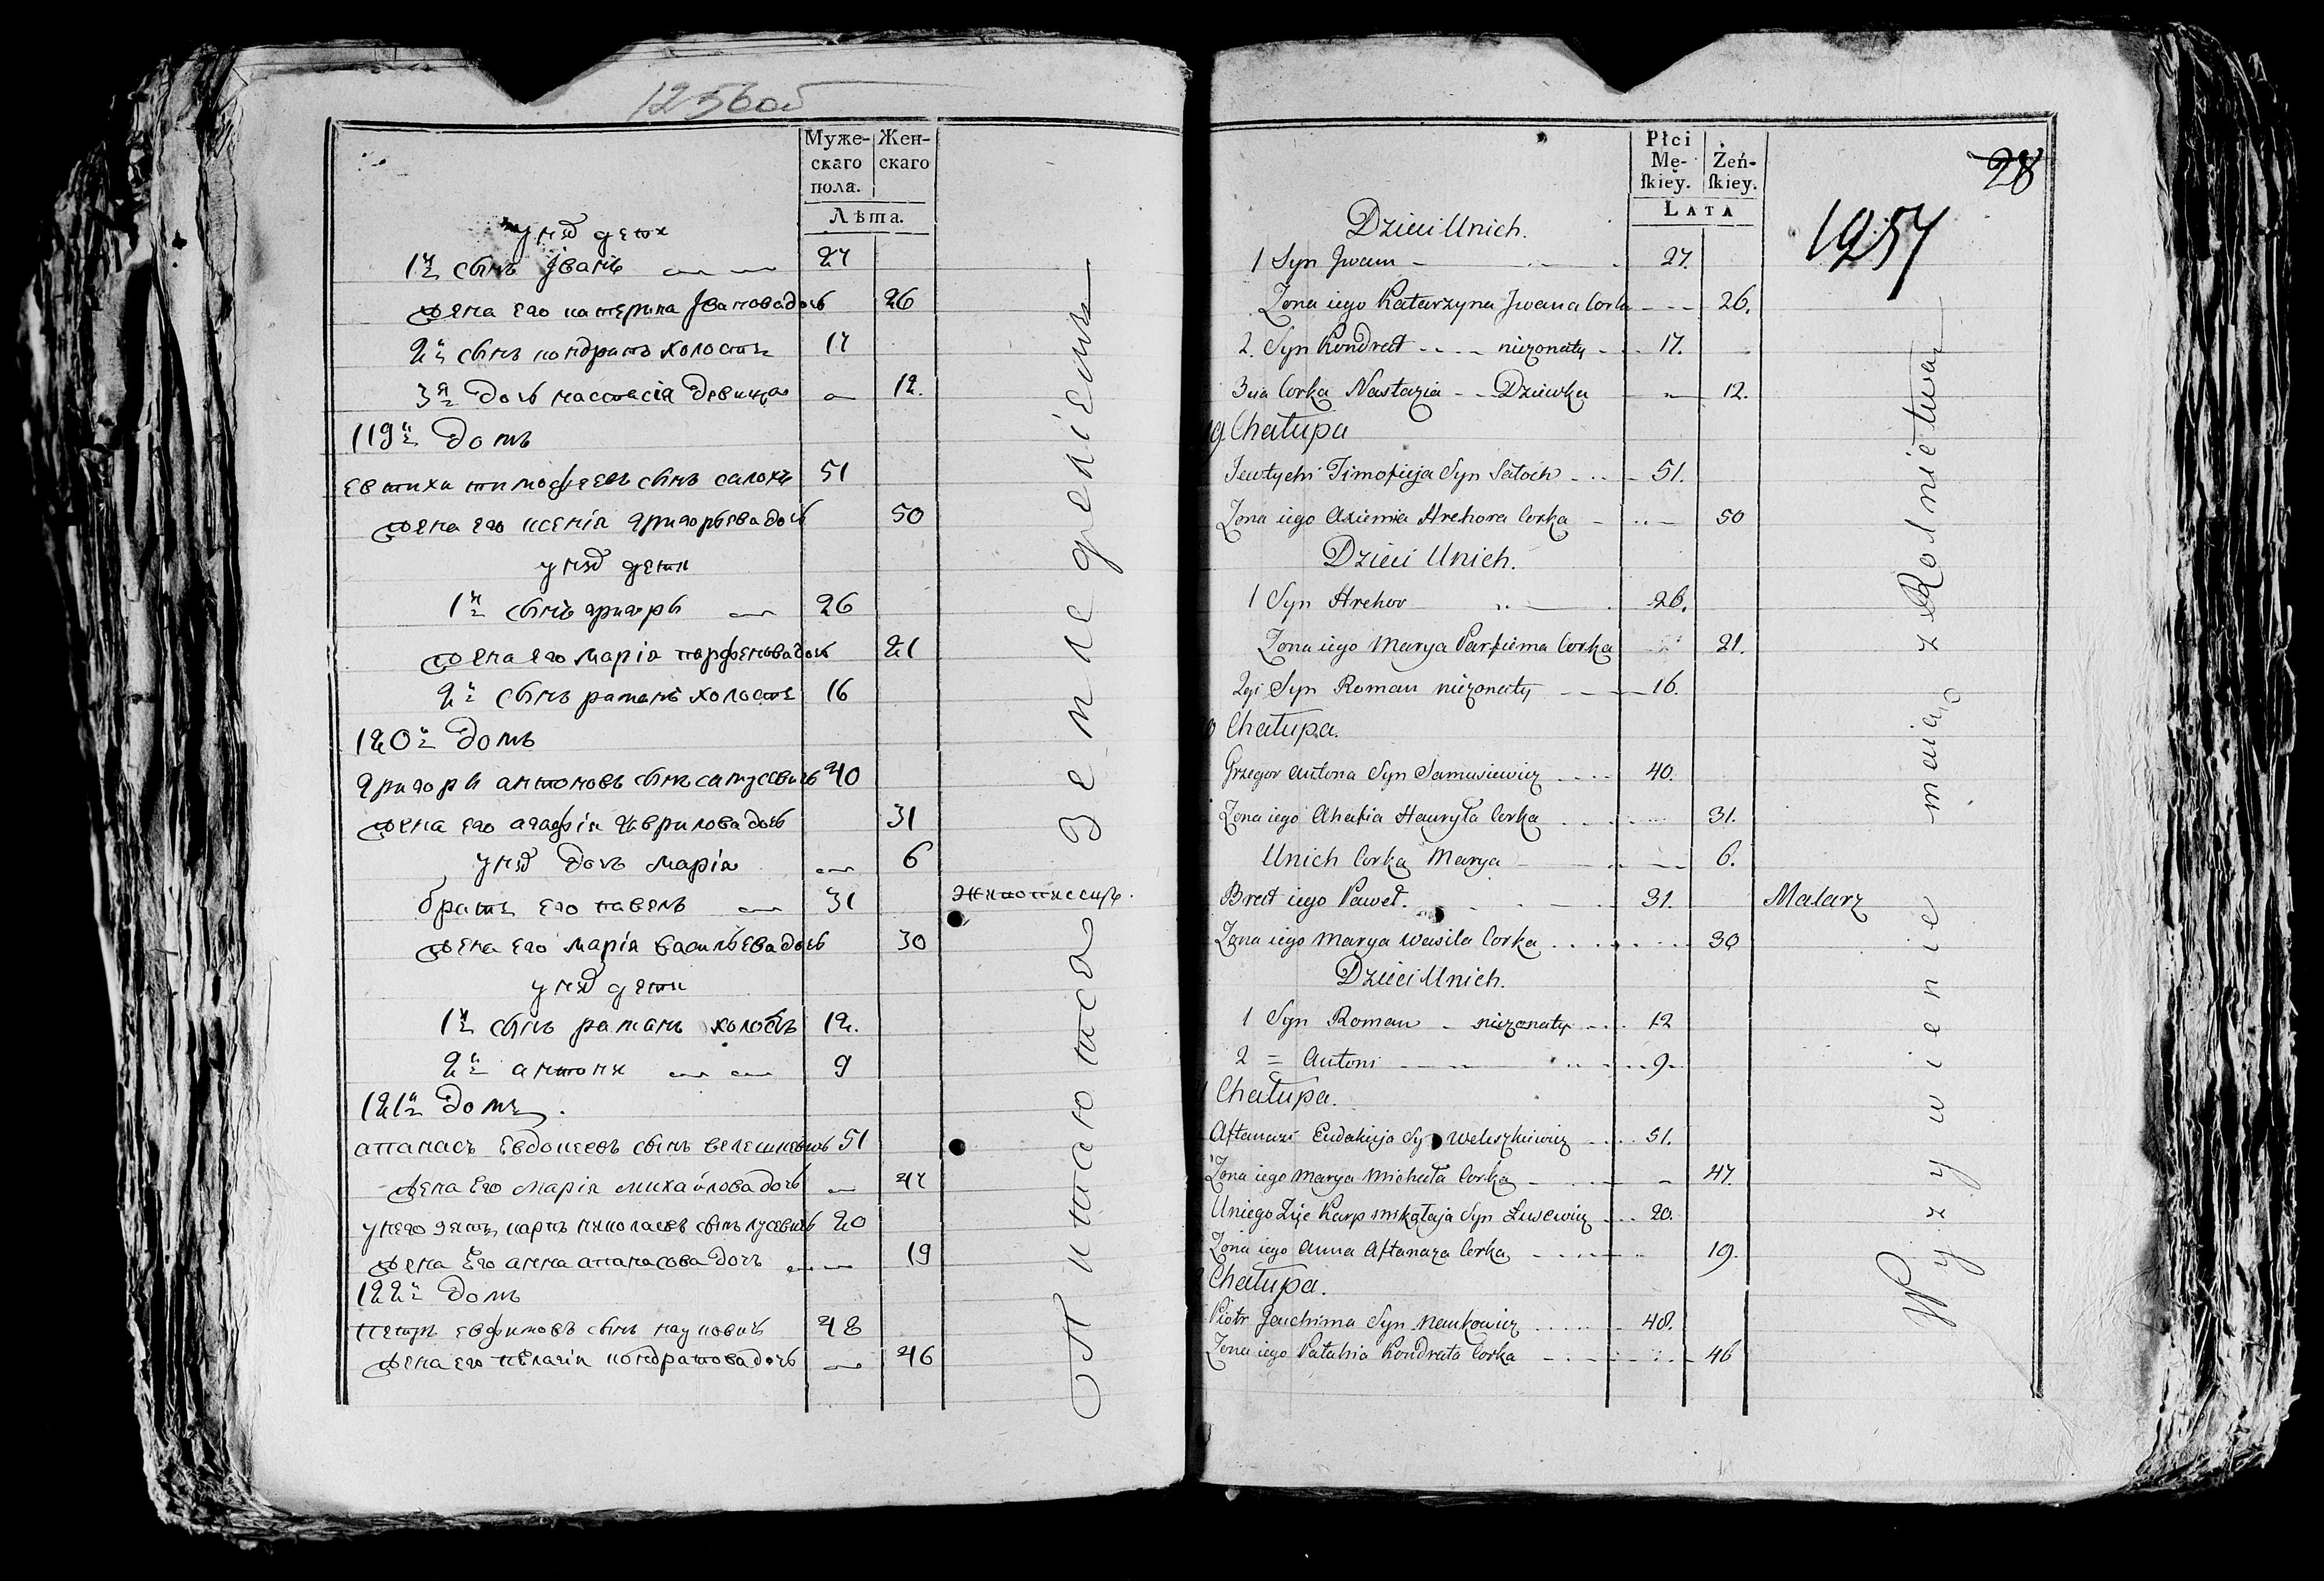 1256об
Муже-
скаго
пола.
Жен-
скаго
Лѣта.
у нихъ дети
1й сынъ Іванъ 27
жена его катерина Іванова дочь 26
2й сынъ кондратъ холостъ 17
3я дочь настасія девица 12.
119й домъ
евтихи тимофеевъ сынъ салохъ 51
жена его ксенія григорьева дочь 50
у нихъ дети
1й сынъ григори 26
жена его марія парфенова дочь 21
2й сынъ раманъ холостъ 16
120й домъ
григори антоновъ сынъ самусевичъ 40
жена его агафія гаврилова дочь 31
у нихъ дочь марія 6
братъ его павелъ 31 живописецъ.
жена его марія васильева дочь 30
у нихъ дети
1й сынъ раманъ холостъ 12.
2й антони 9
121й домъ.
апанасъ евдокеевъ сынъ велешкевичъ 51
жена его марія михайлова дочь 47
у него зять карпъ николаевъ сынъ лусевичъ 20
жена его анна апанасова дочь 19
122й домъ
петръ евфимовъ сынъ науковичъ 48
жена его пелагія кондратова дочь 46
питаются земледеліемъ
28
1257
Płci
Mę-
ſkiey.
Żeń-
ſkiey.
LATA
Dzieci Unich.
1 Syn Jwan 27.
Zona iego Katarzyna Jwana Corka 26.
2. Syn Kondrat niezonaty 17.
3cia Corka Nastazia Dziewka 12.
9. Chałupa
Jewtychi Timofieja Syn Sałoch 51.
Zona iego Axienia Hrehora Corka 50
Dzieci Unich.
1 Syn Hrehor 26.
Zona iego Marya Parfiena Corka 21.
2gi Syn Roman niezonaty 16.
0 Chałupa.
Grzegor Antona Syn Samusiewicz 40.
Zona iego Ahafia Hauryła Corka 31.
Unich Corka Marya 6.
Brat iego Paweł. 31. Malarz
Zona iego Marya Wasila Corka 30
Dzieci Unich.
1 Syn Roman niezonaty 12
2 = Antoni 9
Chałupa.
Aftanazi Eudakieja Syn Weleszkiewicz 51.
Zona iego Marya Michała Corka 47.
Uniego Zięc Karp Mikołaja Syn Łusewicz 20.
Zona iego Anna Aftanaza Corka 19.
Chałupa.
Piotr Jauchima Syn Naukowicz 48.
Zona iego Pałahia Kondrata Corka 46
Wyzywienie maia z Rolnictwa